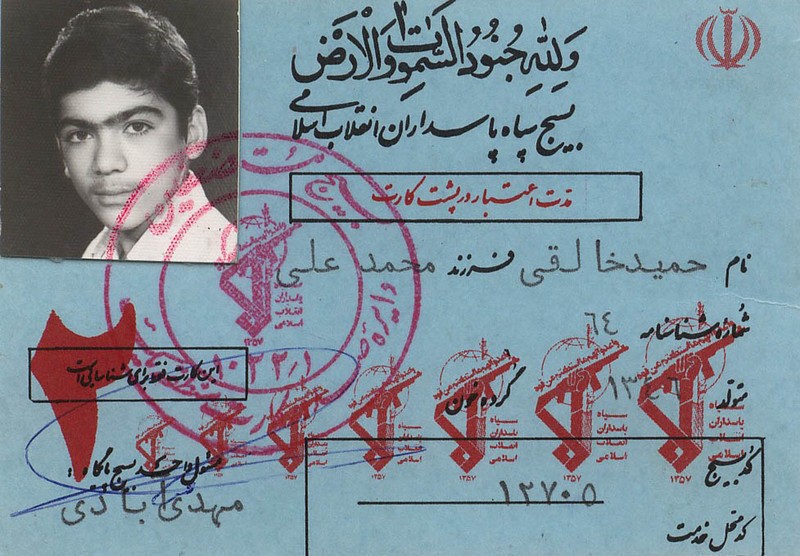 وَلِلّهِ جُنُودُ السَّموَاتِ وَالْاَرْضِ
بسیج سپاه پاسداران انقلاب اسلامی
مدت اعتبار در پشت کارت
نام حمید خالقی فرزند محمد علی
شماره شناسنامه ٦٤
متولد ١٣٤٦
گروه خون
این کارت فقط برای شناسایی است
سپاه پاسداران انقلاب اسلامی
١٣٥٧
کد بسیج ١٢٧٠٥
مسئول واحد بسیج پایگاه:
مهدی آبادی
کد محل خدمت